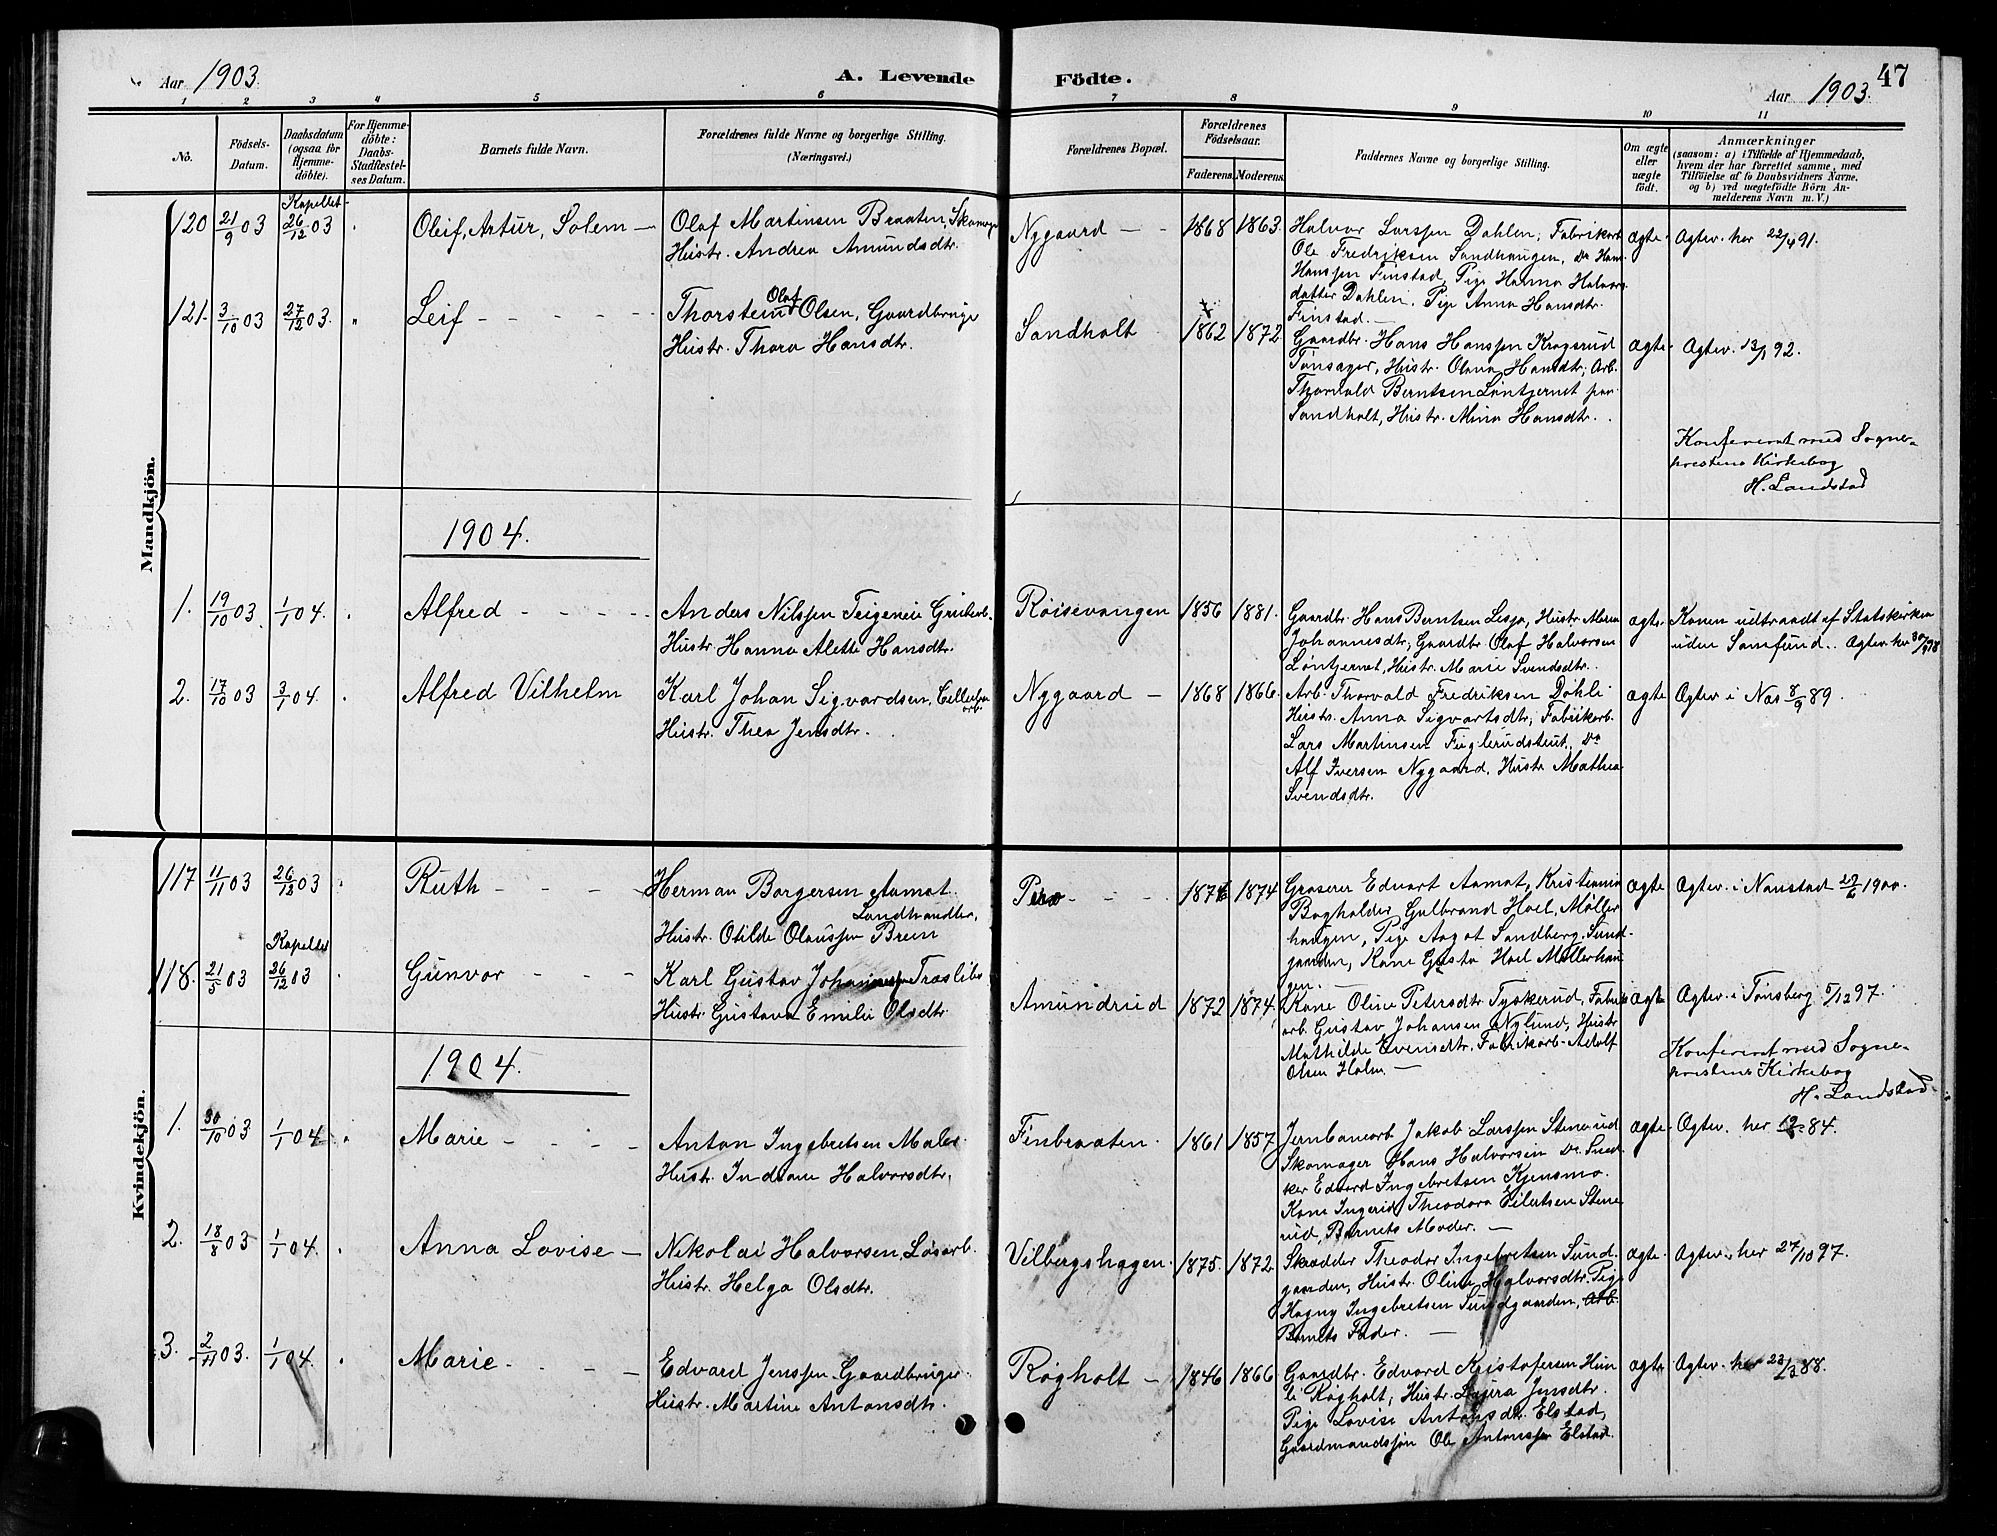 Aar 1903.
A. Levende
Födte.
Aar 1903.
47
1 2 3 4 5 6 7 8 9 10 11
No.
Födsels-
Datum.
Daabsdatum
(ogsaa for
Hjemme-
döbte).
For Hjemme-
döbte:
Daabs-
Stadfæstel-
ses Datum.
Barnets fulde Navn.
Forældrenes fulde Navne og borgerlige Stilling.
(Næringsvei.)
Forældrenes Bopæl.
Forældrenes
Födselsaar.
Faderens.
Moderens.
Faddernes Navne og borgerlige Stilling.
Om ægte
eller
uægte
födt.
Anmærkninger
(saasom: a) i Tilfælde af Hjemmedaab,
hvem der har forrettet samme, med
Tilföielse af to Daabsvidners Navne.
og b) ved uægtefödte Börn An-
melderens Navn m. V.)
Mandkjön.
Kapellet
120 21/9 03 26/12 03 " Oleif, Artur, Solem —
Olaf Martinsen Braaten, Skomager
Hustr. Andrea Amundsdtr.
Nygaard — - 1868 1863.
Halvor Larssen Dahlen, Fabrikarb
Ole Fredriksen Sandhaugen, Do Hans
Hanssen Finstad, Pige Hanna Halvors
datter Dahlen, Pige Anna Hansdtr.
Finstad. —
ægte. Ægtev. her 22/4 91.
121. 3/10 03 27/12 03. " Leif - - - - -
Olaf
Thorstein Olsen, Gaardbruger
Hustr. Thora Hansdtr.
Sandholt 1862 1872
Gaardbr. Hans Hanssen Krogsrud
Tonsager, Hustr. Olava Hansdtr, Arb.
Thorvald Berntsen Løntjernet paa
Sandholt, Hustr. Mina Hansdtr.
ægte. Ægtev. 13/1 92.
Konfereret med Sogne-
prestens Kirkebog
H. Landstad
1904.
1. 19/10 03. 1/1 04. " Alfred - - - - -
Anders Nilssen Teigeneie Grubarb.
Hustr. Hanna Alette Hansdtr.
Røisevangen 1856 1881.
Gaardbr. Hans Berntsen Lesja, Hustr. Maren
Johannesdtr, Gaardbr. Olaf Halvorsen
Løntjernet, Hustr. Marie Svendsdtr.
ægte. Konen udtraadt af Statskirken
uden Samfund. Ægtev. her 30/ 98
2. 17/10 03 3/1 04. Alfred Vilhelm
Karl Johan Sigvardsen, Cellulose
arb.
Hustr. Thea Jensdtr.
Nygaard — 1868 1866.
Arb. Thorvald Fredriksen Døhli
Hustr. Anna Sigvartsdtr, Fabrikarb.
Lars Martinsen Fuglerudstuet, Do
Alf Iversen Nygaard, Hustr Mathea
Svendsdtr.
ægte Ægtev i Næs 8/9 89.
Kvindekjön.
117 11/11 03 26/12 03 . Ruth - - - -
Herman Borgersen Aamot.
Landhandler,
Hustr. Otilde Olaussen Breen
- - - 1874 1874
Groserer Edvart Aamot, Kristiania
Bogholder Gulbrand Hoel, Møller
haugen, Pige Aagot Sandberg, Sund-
gaarden, Kone Gusta Hoel Møllerhau
gen. —
ægte Ægtev. i Nanstad 29/6 1900.
Kapellet
118. 21/5 03 26/12 03 . Gunvor - - -
Karl Gustav Johannesen Træsliber
Hustr. Gustava Emilie Olsdtr.
Amundrud 1872 1874.
Kone Oline Petersdtr Tyskerud, Fabrik
arb. Gustav Johansen Nylund, Hustr
Mathilde Evensdtr, Fabrikarb. Adolf
Olsen Holm. —
ægte Ægtev. i Tønsberg 5/12 97.
Konfereret med Sogne-
prestens Kirkebog
H. Landstad.
1904.
1. 30/10 03 1/1 04 . Marie - - - -
Anton Ingebretsen Maler.
Hustr. Indiane Halvorsdtr.
Finbraaten. 1861 1857
Jernbanearb Jakob Larssen Stenerud
Skomager Hans Halvorsen Do. Sned
ker Edvard Ingebretsen Kjensmo.
Kone Ingerid Theodora Eilertsen Stene
rud, Barnets Moder. —
ægte. Ægtev. her 84.
2. 18/8 03 1/1 04. . Anna Lovise —
Nikolai Halvorsen, Løsarb.
Hustr. Helga Olsdtr.
Vilbergshagen. 1875. 1872
Skrædder Theodor Ingebretsen Sund
gaarden, Hustr. Oline Halvorsdtr. Pige
Hagny Ingebretsen Sundgaarden, Arb.
Barnets Fader. —
ægte. Ægtev. her 27/10 97.
3. 2/11 03. 1/1 04. . Marie - - - -
Edvard Jenssen Gaardbruger
Hustr. Martine Antonsdtr.
Røgholt — 1846 1866
Gaardbr. Edvard Kristofersen Hun
li Røgholt, Hustr. Laura Jensdtr.
Pige Lovise Antonsdtr. Elstad,
Gaardmandssøn Ole Antonssen Elstad.
ægte Ægtev. her 23/3 88.